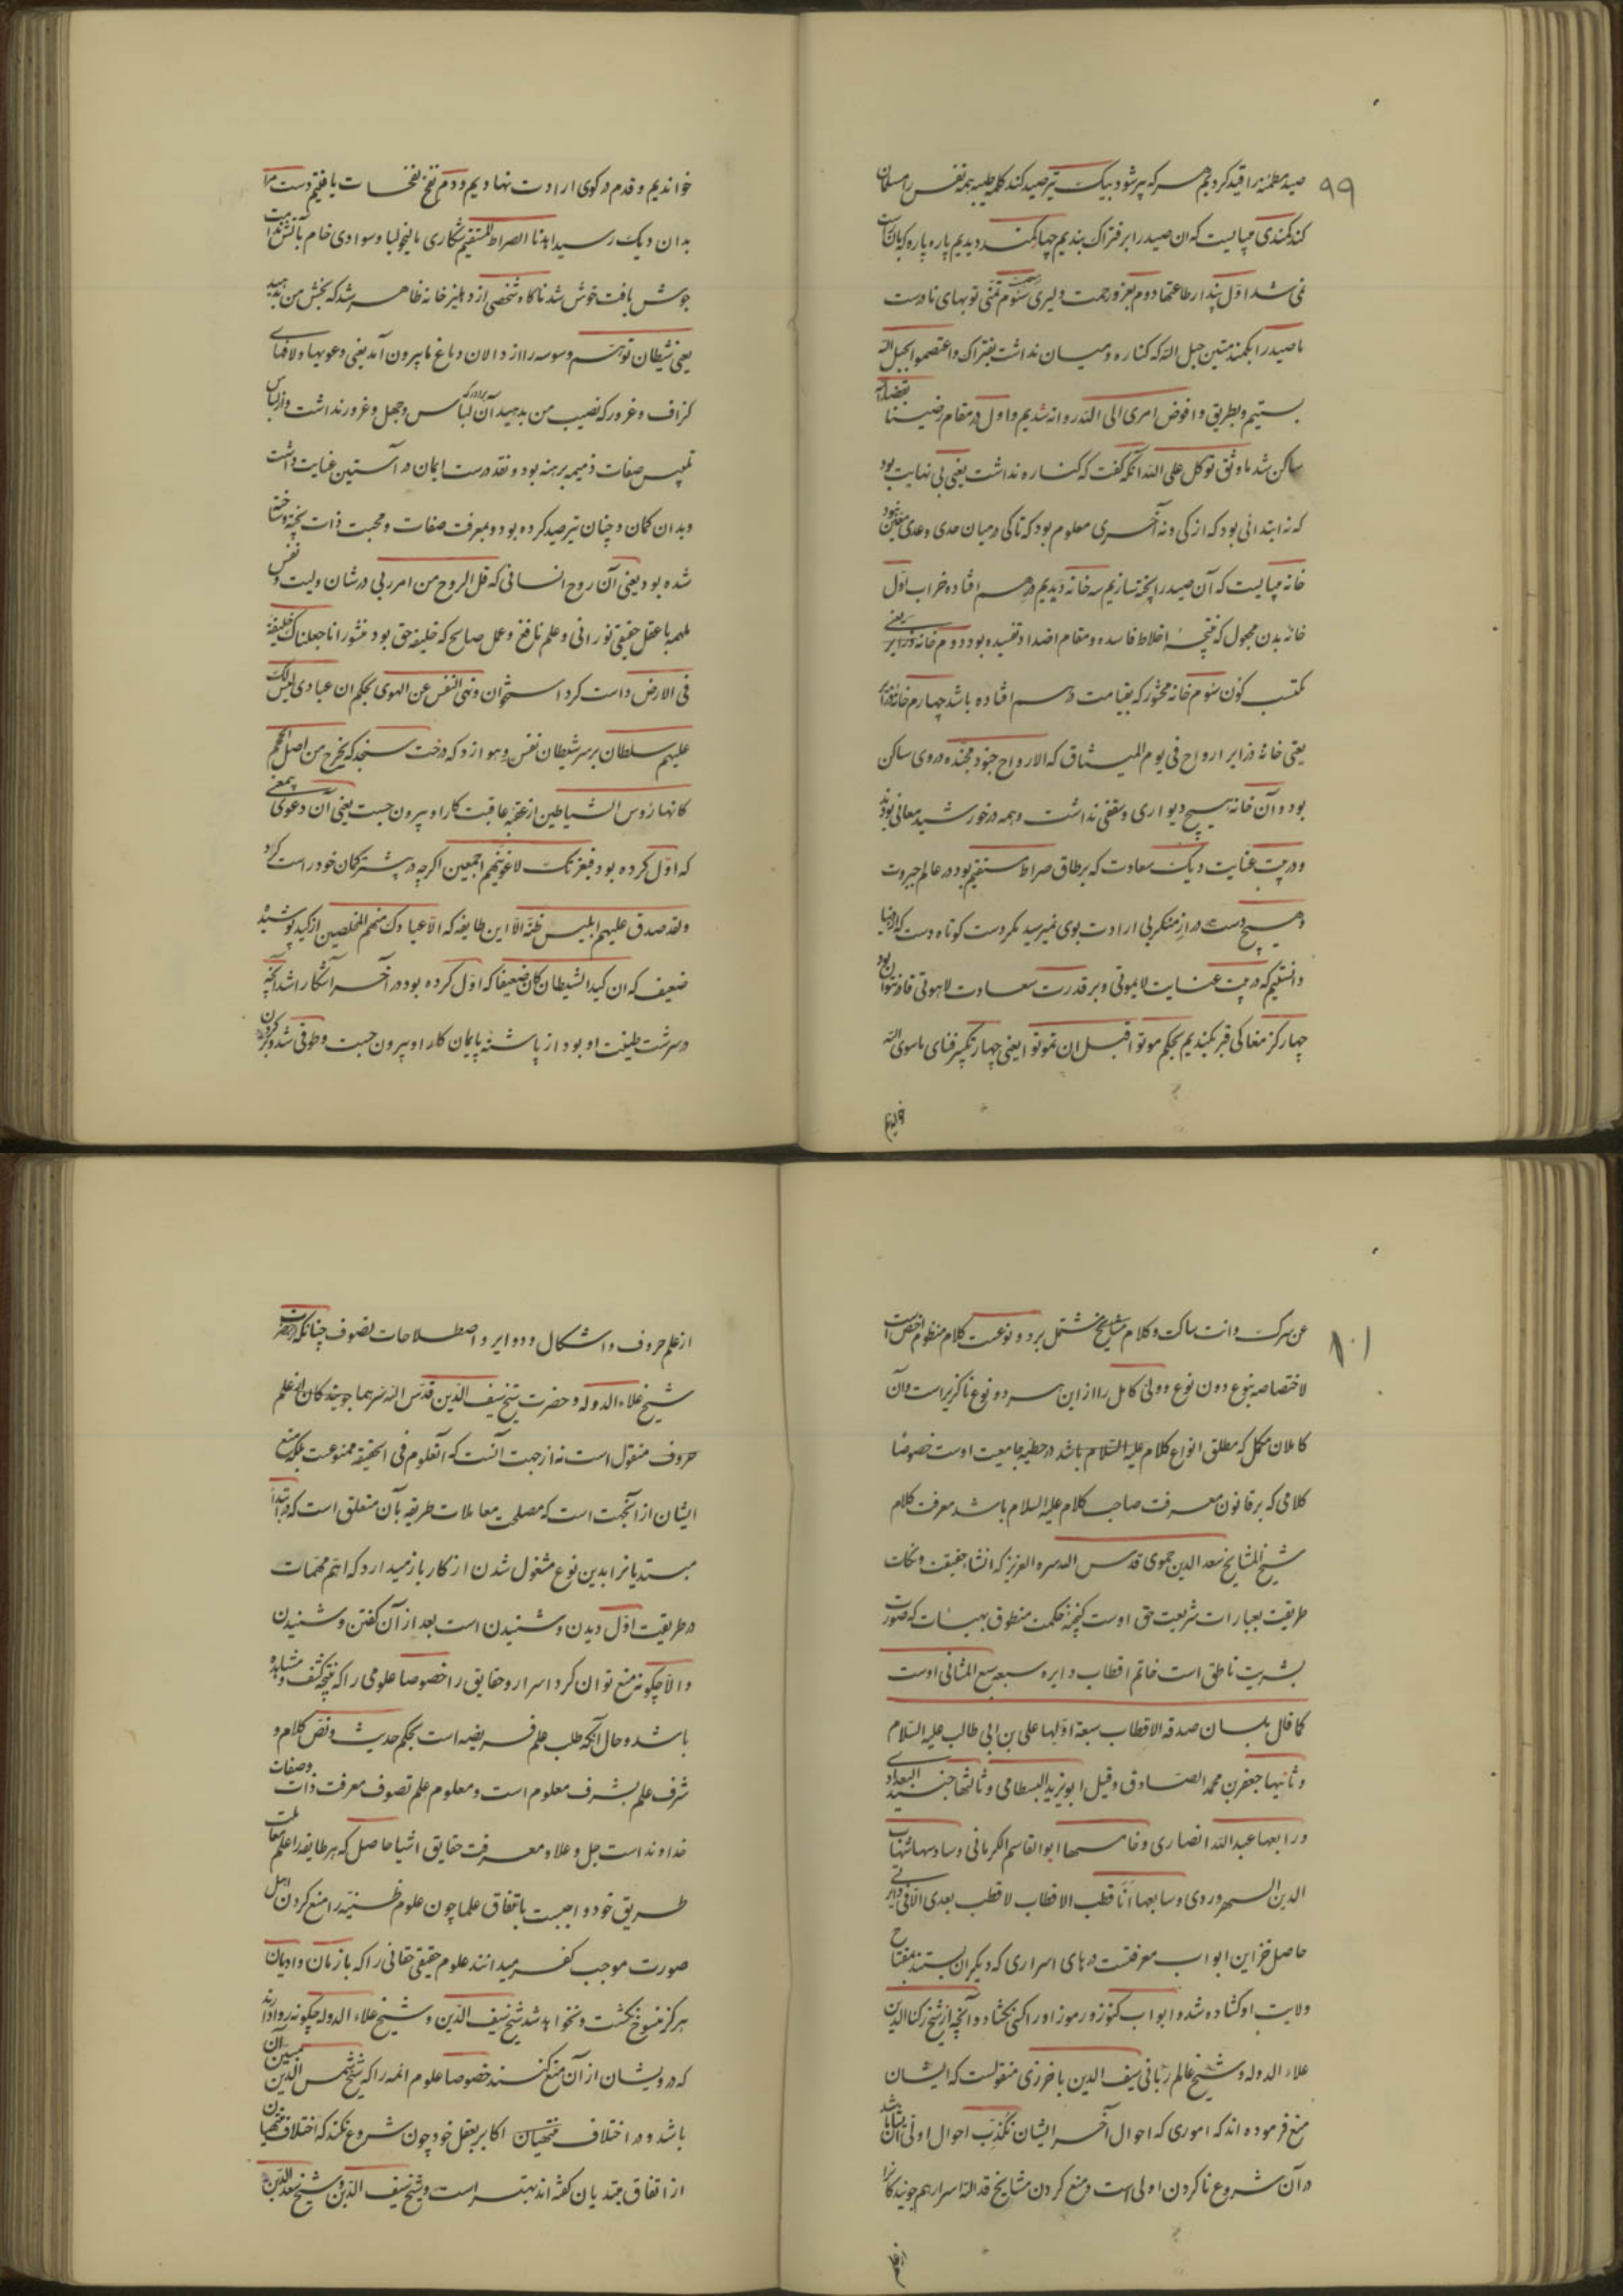 ۹۹
صید مطمئنه را قید کردیم هر که پیر شود بیک تیر صید کند کلمه طیبه همه نفس را مسلمان
کند کمندی میبایست که ان صید را بر فتراک بندیم چهار کمند دیدیم پاره پاره که بکار راست
نمی شد اول پندار طاعتها دوم بغرور رحمت دلیری سوم تمنی توبهای نادرست
ما صید را بکمند متین حبل الله که کناره و میان نداشت بفتراک واعتصموا بحبل الله
بستیم و بطریق وافوض امری الی الله روانه شدیم و اول در مقام رضینا بقضاء الله
ساکن شد ما وثق توکل علی الله انکه گفت که کناره نداشت یعنی بی نهایت بود
که نه ابتدائی بود که از کی و نه آخری معلوم بود که تا کی در میان حدی وعدی معین نبود
خانه میبایست که آن صید را پخته سازیم سه خانه دیدیم درهم افتاده خراب اول
خانه بدن مجهول که نتیجه اخلاط فاسده و مقام اضداد نفسیده بود دوم خانه
مکتسب کون سوم خانه محشور که بقیامت درهم افتاده باشد چهارم خانه
یعنی خانه ذرایر ارواح فی یوم المیثاق که الارواح جنود مجنده در وی ساکن
بود و آن خانه هیچ دیواری و سقفی نداشت و همه در خورشید معانی بودند
و در پیت عنایت دیک سعادت که بر طاق صراط مستقیم بود در عالم جبروت
و هیچ دست دراز منکر بی ارادت بوی نمیرسید مگر دست کوتاه دست که از دنیا
دانستیم که در پیت عنایت لایموتی و بر قدرت سعادت لاهوتی قادر نتوان بود
چهار کز مغاکی قبر بکندیم بحکم موتوا قبل ان تموتوا یعنی چهار تکبیر فنای ماسوی الله
خواندیم و قدم در کوی ارادت نهادیم و دم نفخ نفحات یافتیم دست ما
بدان دیک رسید اهدنا الصراط المستقیم شکاری مالیخولیا و سوادی خام بآتش
جوش یافت خوش شد ناگاه شخصی از دهلیز خانه ظاهر شد که بخش من بدهید
یعنی شیطان توهم وسوسه را از دالان دماغ ما بیرون آمد یعنی دعویها و لافهای
گزاف و غرور که نصیب من بدهید آن لباس و جهل و غرور نداشت و از لباس
تلبیس صفات ذمیمه برهنه بود و نقد درست ایمان در آستین عنایت داشت
و بدان کمان و چنان تیر صید کرده بود و بمعرفت صفات و محبت ذات پخته و ساخته
شده بود یعنی آن روح انسانی که قل الروح من امر ربی در شان ولیت و نفس
ملهمه با عقل حقیقی نورانی و علم نافع و عمل صالح که خلیفه حق بود منشور انا جعلناک خلیفة
فی الارض داست کرد استخوان ونهی النفس عن الهوی بحکم ان عبادی لیس لک
علیهم سلطان بر سر شیطان نفس و هوا زد که درخت سنجد که یخرج من اصل الجحیم
کانها رؤس الشیاطین از عقبه عاقبت کار او بیرون جست یعنی آن دعوی
که اول کرده بود فبعزتک لاغوینهم اجمعین اگرچه در پشت کمان خود راست کرد
ولقد صدق علیهم ابلیس ظنه الا این طایفه که الا عبادک منهم المخلصین از کید پوشیده
ضعیف که ان کید الشیطان کان ضعیفا که اول کرده بود در آخر آشکارا شد آنچه
در سرشت طینت او بود از پاشنه پایان کار او بیرون جست و طوقی شد و بر گردن
خواندیم
۱۰۱
عن سرک وانت ساکت و کلام مشایخ مشتمل بر دو نوعست کلام منظوم اخص است
لاختصاصه بنوع دون نوع و ولی کامل را از این هر دو نوع ناگزیر است و آن
کاملان مکمل که مطلق انواع کلام علیه السلام باشد در حطیه جامعیت اوست خصوصا
کلامی که بر قانون معرفت صاحب کلام علیه السلام باشد معرفت کلام
شیخ المشایخ سعد الدین حموی قدس الله سره العزیز که انشاء حقیقت و نکات
طریقت بعبارات شریعت حق اوست گنجه حکمت منطوق بهیئات که صورت
بشریت ناطق است خاتم اقطاب دایره سبعه سبع المثانی اوست
کما قال بلسان صدقه الاقطاب سبعة اولها علی بن ابی طالب علیه السلام
و ثانیها جعفر بن محمد الصادق وقیل ابو یزید البسطامی و ثالثها جنید البغدادی
و رابعها عبد الله انصاری و خامسها ابو القاسم الکرمانی و سادسها شهاب
الدین السهروردی و سابعها انا قطب الاقطاب لا قطب بعدی الا فی
حاصل خزاین ابواب معرفتست درهای اسراری که دیگران بستند بمفتاح
ولایت او گشاده شد و ابواب کنوز و رموز او را کسی نگشاد و آنچه از شیخ رکن الدین
علاء الدوله و شیخ عالم ربانی سیف الدین باخرزی منقولست که ایشان
منع فرموده اند که اموری که احوال آخر ایشان مکذب احوال اول
در آن شروع ناکردن اولی است و منع کردن مشایخ قدس الله اسرارهم جویندگانرا
از علم
از علم حروف و اشکال و دوایر و اصطلاحات تصوف چنانکه از حضرت
شیخ علاء الدوله و حضرت شیخ سیف الدین قدس الله سرهما جویندگان از علم
حروف منقول است نه از جهت آنست که آنعلوم فی الحقیقه ممنوعست بلکه منع
ایشان از آنجهت است که مصلحت معاملات طریقه بآن متعلق است که در ابتدا
مبتدیانرا بدین نوع مشغول شدن از کار باز میدارد که اهم مهمات
در طریقت اول دیدن و شنیدن است بعد از آن گفتن و شنیدن
والا چگونه منع توان کرد اسرار و حقایق را خصوصا علومی را که نتیجه کشف و مشاهده
باشد و حال آنکه طلب علم فریضه است بحکم حدیث و نص کلام و
شرف علم بشرف معلوم است و معلوم علم تصوف معرفت ذات و صفات
خداوند است جل و علا و معرفت حقایق اشیا حاصل که هر طایفه را علم معاملت
طریق خود واجبست باتفاق علما چون علوم ظنیه را منع کردن اهل
صورت موجب کفر میدانند علوم حقیقی حقانی را که بازمان و ادیان
هرگز منسوخ نگشت و نخواهد شد شیخ سیف الدین و شیخ علاء الدوله چگونه روا دارند
که درویشان از آن منع کنند خصوصا علوم ائمه را که شیخ شمس الدین مبین آن
باشد و در اختلاف منتهیان اکابر بعقل خود چون شروع نکند که اختلاف منتهیان
از اتفاق مبتدیان گفته اند بهتر است و شیخ سیف الدین و شیخ سعد الدین